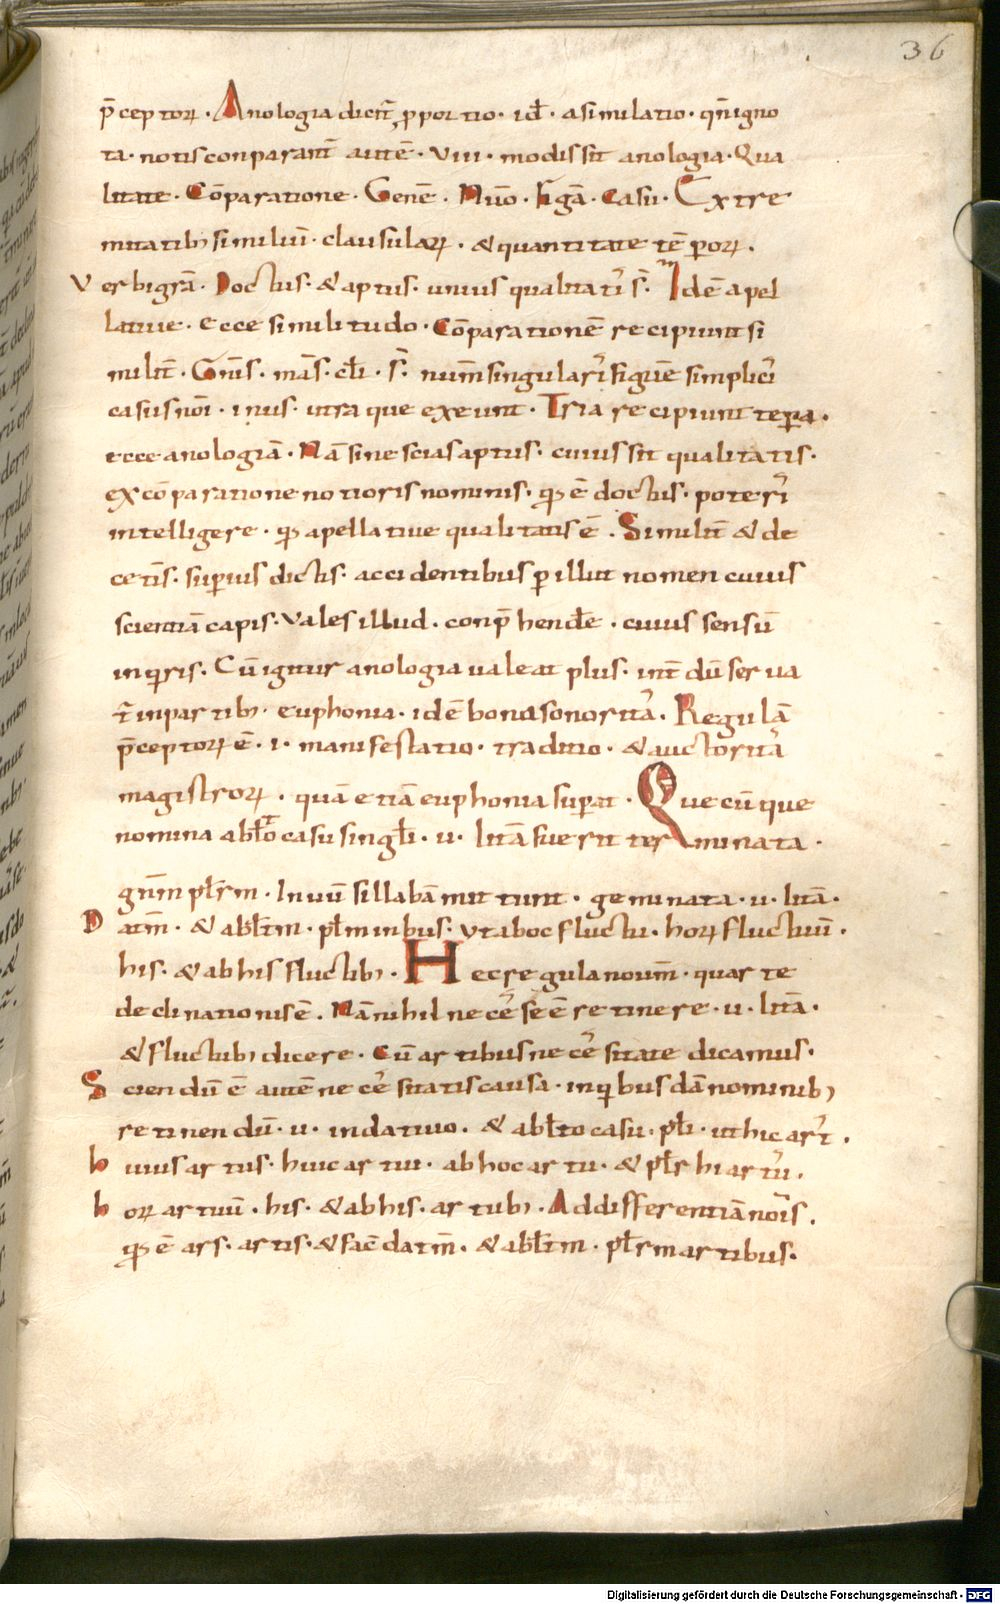 36
p̄ceptorꝝ · Anologia dicit̄ ꝓportio · id̄ · asimilatio · qn̄ igno
ta · notis conparant̄ aut̄ē · VIII · modis sit̄ anologia · Qua
litate · Cōparatione · Genē · Nuō · figā · Casu · Extre
mitatibꝫ similiū · clausularꝝ · & quantitate tēꝑorꝝ ·
Verbi gr̄a · Doctus · & aptus · unius qualitatis̄ s̄ · Idē apel
latiue · ecce similitudo · Cōparationē recipiunt si
milit̄ · Gn̄is · mās · cl̄i · s̄ · num̄ singularis̄ figurē simplicis̄
casus nōi · in us · utra que exeunt · Tria recipiunt teꝑa ·
ecce anologiā · Nā si nescias aptus · cuius sit qualitatis ·
ex cōparatione notioris nominis · qđ ē doctus · poteris̄
intelligere · qđ apellatiue qualitatis ē · Similit̄ & de
cet̄is · suꝑius dictis · accidentibus ꝑ illut nomen cuius
scientiā capis · Vales illud · conp̄hendēre · cuius sensū
inꝗris · Cū igitur anologia ualeat plus · int̄dū serua
t̄ in partibꝫ · euphonia · id ē bona sonoritas̄ · Regulā
p̄ceptorꝝ ē · i · manifestatio · traditio · & auctoritas̄
magistrorꝝ · quā etiā euphonia suꝑat · Quecūque
nomina abl̄to casu singl̄i · u · lit̄a fuerīt terminata ·
gn̄m pl̄rm · In uū sillabā mittunt · geminata · u · lit̄a ·
Datm̄ · & abl̄tm · pl̄m in bus · vt ab oc fluctu · horꝝ fluctuū ·
his · & ab his fluctibꝫ · Hec regula noium̄ · quarte
declinationis ē · Nā nihil necēsse ē retinere · u · lit̄a ·
& fluctubꝫ dicere · Cū artibus necēsitate dicamus ·
Sciendū ē autē necēsitatis causa · in ꝗbusdā nominibꝫ
retinendū · u · in datiuo · & abl̄to casu · pl̄i · ut hic art̄ ·
huius artus · huic artui · ab hoc artu · & pl̄r hi artus̄ ·
horꝝ artuū · his · & ab his · artubꝫ · Ad differentiā nōis ·
qđ ē ars · artis · & facē datm̄ · & abl̄tm · pl̄rm artibus ·
Digitalisierung gefördert durch die Deutsche Forschungsgemeinschaft - DFG